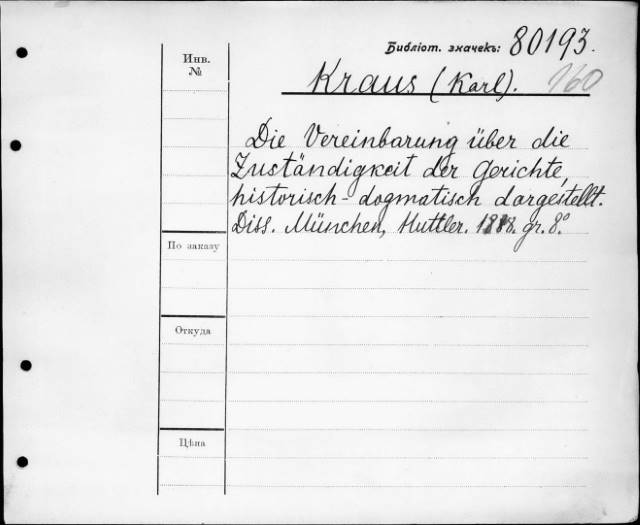 Библіот. значекъ: 80193.
Инв.
№
Kraus (Karl). 160
Die Vereinbarung über die
Zuständigkeit der Gerichte,
historisch-dogmatisch dargestellt.
Diss. München, Huttler. gr. 8.°
По заказу
Откуда
Цѣна